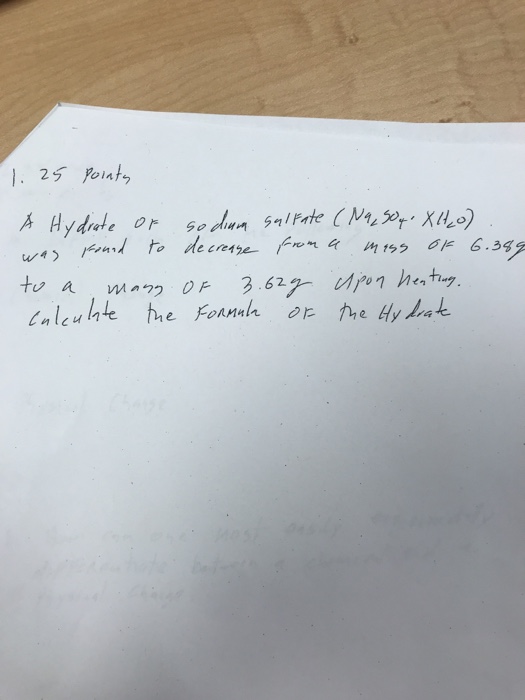 1. 25 Points
A Hydrate OF sodium sulfate (Na₂SO₄·XH₂O)
was found to decrease from a mass OF 6.38g
to a mass OF 3.62g upon heating.
Calculate the Formula OF the Hydrate